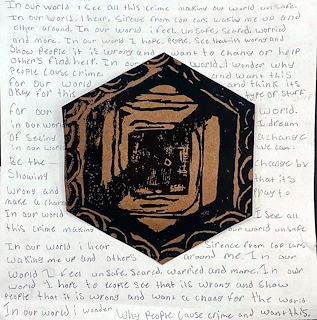 In our world I see all this crime making our world unsafe.
In our world, I hear, Sirence from cop cars waking me up and
other around. In our world I feel unsafe, scared, worried
and more. In our world I hope people see that its wrong and
Show people it is wrong and want to chang or help
others find help. In our world I wonder why
People cause crime. and want this
for our world and think its
okay for this type of stuff.
for our World.
in our world I dream
of seeing a change
in our we can
Be the change by
Showing that it's
Wrong and pray to
make a chan
In our world I see all
this crime making our world unsafe
In our world i hear Sirence from cop cars
waking me up and others around me In our
World I feel unsafe, Scared, worried and more. In our
world I hope to people see that its wrong and show
people that it is wrong and want a chang for the world
In our world i wonder Why people Cause crime and want this.